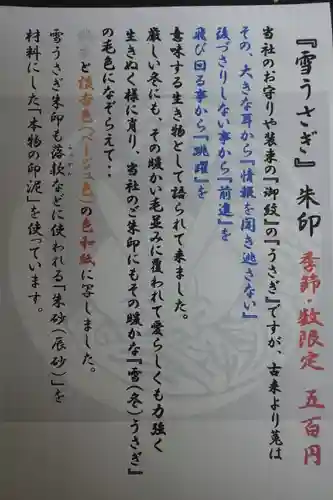 『雪うさぎ』朱印 季節・数限定 五百円
当社のお守りや装束の『御紋』の『うさぎ』ですが、古来より兎は
その、大きな耳から『情報を聞き逃さない』
後づさりしない事から『前進』を
飛び回る事から『跳躍』を
意味する生き物として語られて来ました。
厳しい冬にも、その暖かい毛並みに覆われて愛らしくも力強く
生きぬく様に肖り、当社のご朱印にもその暖かな『雪(冬)うさぎ』
の毛色になぞらえて・・
と淡香色(ベージュ色)の色和紙に写しました。
雪うさぎ朱印も落款などに使われる『朱砂(辰砂)』を
材料にした『本物の印泥』を使っています。